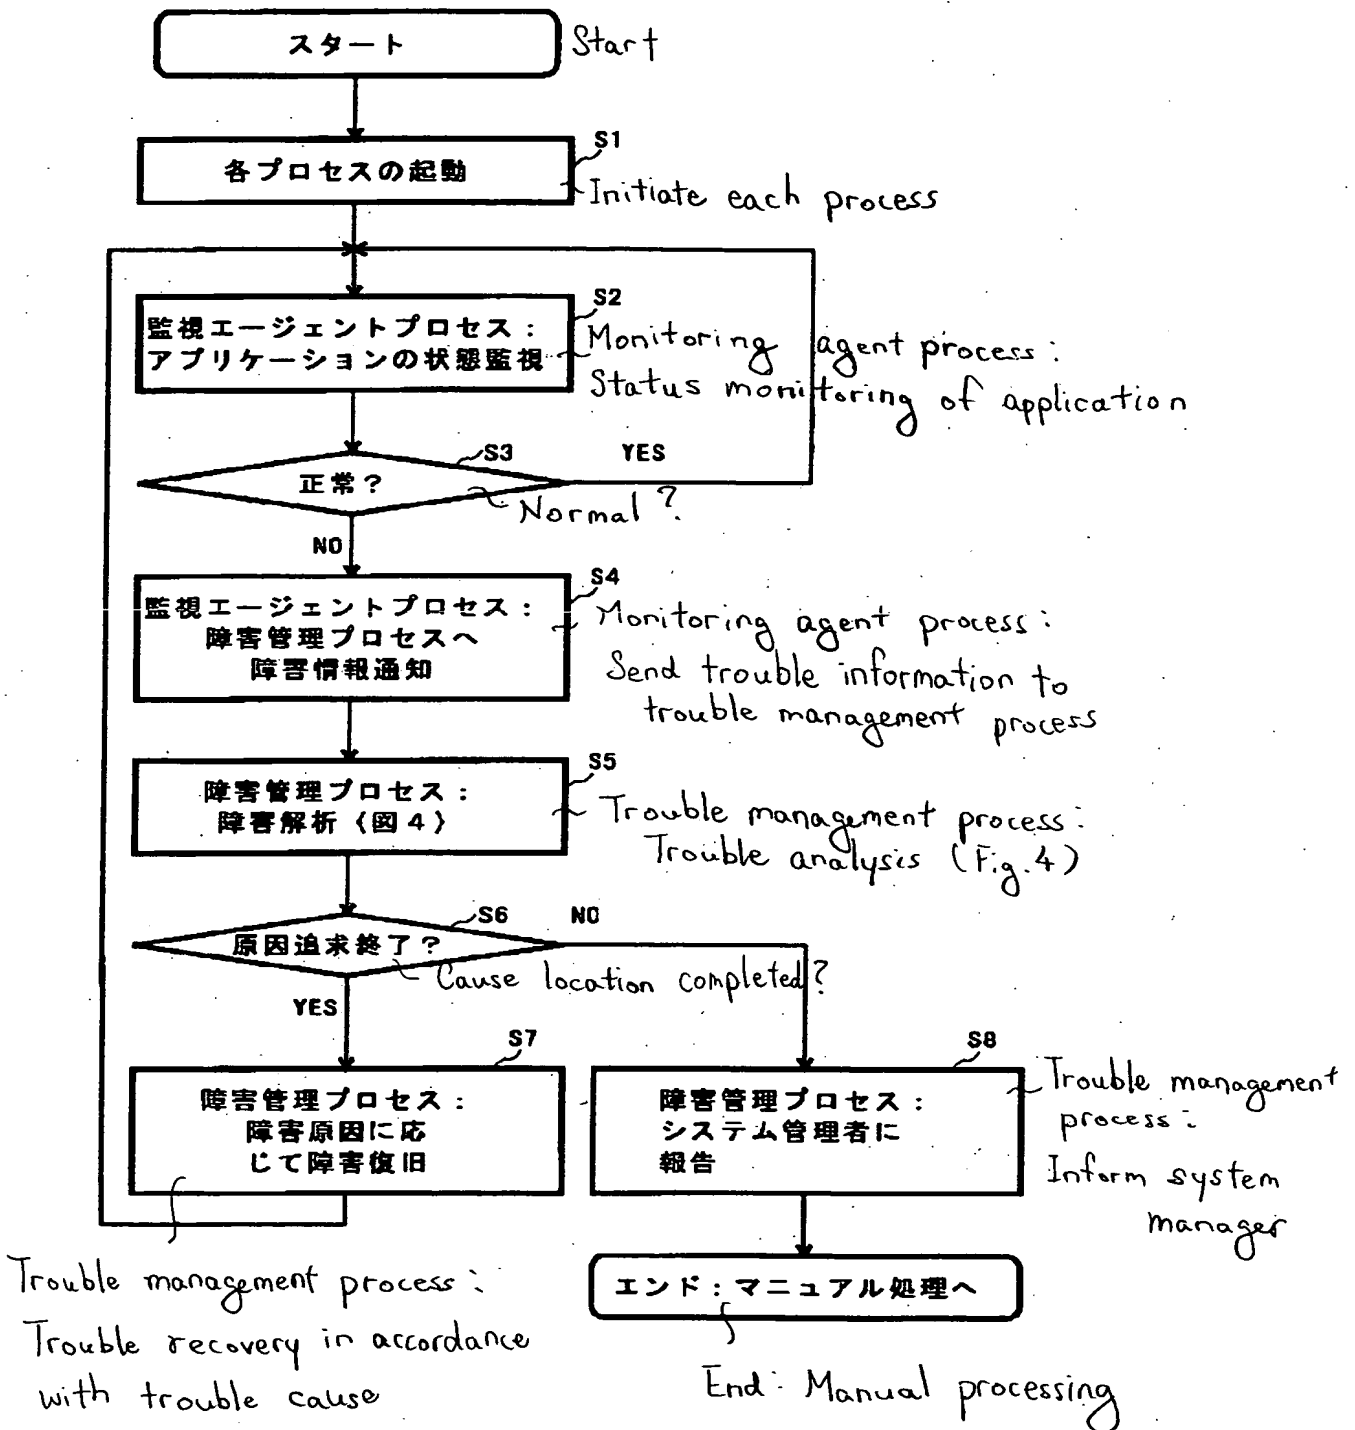 スタート
Start
S1
各プロセスの起動
Initiate each process
S2
監視エージェントプロセス：
アプリケーションの状態監視
Monitoring agent process:
Status monitoring of application
S3
YES
正常？
Normal?
NO
S4
監視エージェントプロセス：
障害管理プロセスへ
障害情報通知
Monitoring agent process:
Send trouble information to
trouble management process
S5
障害管理プロセス：
障害解析（図４）
Trouble management process:
Trouble analysis (Fig. 4)
S6
NO
原因追求終了？
Cause location completed?
YES
S7
障害管理プロセス：
障害原因に応
じて障害復旧
S8
障害管理プロセス：
システム管理者に
報告
Trouble management
process:
Inform system
manager
Trouble management process:
Trouble recovery in accordance
with trouble cause
エンド：マニュアル処理へ
End: Manual processing